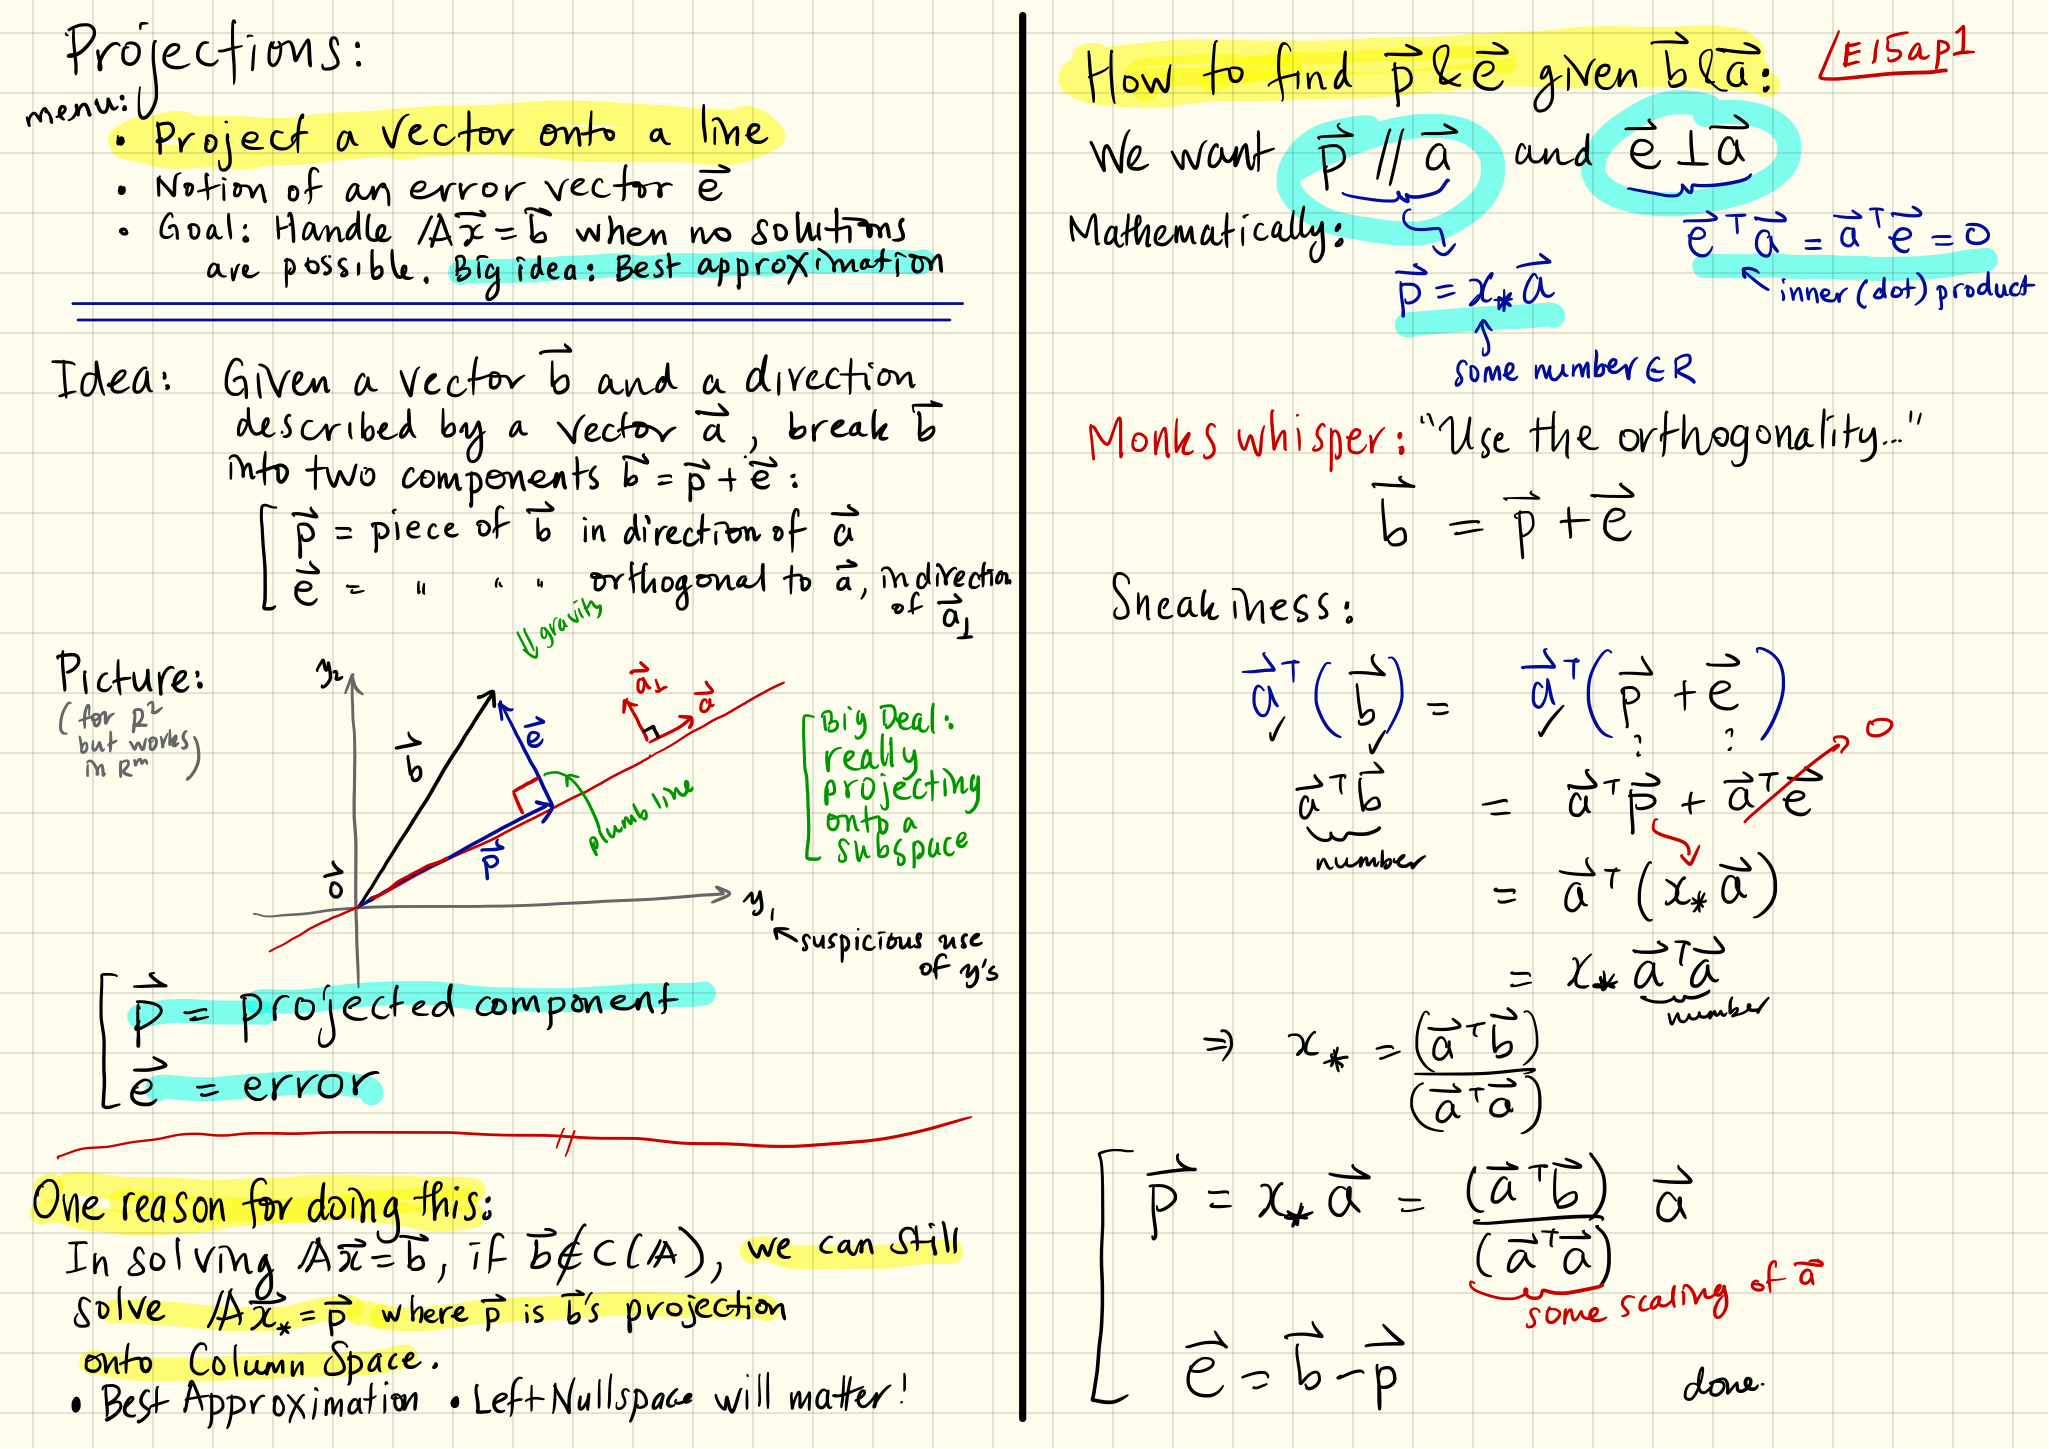 Projections:
menu:
• Project a vector onto a line
• Notion of an error vector e⃗
• Goal: Handle 𝔸x⃗ = b⃗ when no solutions
are possible. Big idea: Best approximation
Idea: Given a vector b⃗ and a direction
described by a vector a⃗, break b⃗
into two components b⃗ = p⃗ + e⃗:
p⃗ = piece of b⃗ in direction of a⃗
e⃗ = " " " orthogonal to a⃗, in direction
of a⃗⊥
⇓ gravity
Picture:
(for R²
but works
in Rᵐ)
y₂
b⃗
e⃗
a⃗⊥
a⃗
p⃗
plumb line
0⃗
y₁
Big Deal:
really
projecting
onto a
subspace
suspicious use
of y's
p⃗ = projected component
e⃗ = error
One reason for doing this:
In solving 𝔸x⃗ = b⃗, if b⃗ ∉ C(𝔸), we can still
solve 𝔸x⃗* = p⃗ where p⃗ is b⃗'s projection
onto Column Space.
• Best Approximation • Left Nullspace will matter!
How to find p⃗ & e⃗ given b⃗ & a⃗:
E15ap1
We want p⃗ // a⃗ and e⃗ ⊥ a⃗
Mathematically:
e⃗ᵀa⃗ = a⃗ᵀe⃗ = 0
inner (dot) product
p⃗ = x* a⃗
some number ∈ R
Monks whisper: "Use the orthogonality..."
b⃗ = p⃗ + e⃗
Sneakiness:
a⃗ᵀ(b⃗) = a⃗ᵀ(p⃗ + e⃗)
✓ ✓ ✓ ? ?
a⃗ᵀb⃗ = a⃗ᵀp⃗ + a⃗ᵀe⃗ → 0
number
= a⃗ᵀ(x* a⃗)
= x* a⃗ᵀa⃗
number
⇒ x* = (a⃗ᵀb⃗) / (a⃗ᵀa⃗)
p⃗ = x* a⃗ = (a⃗ᵀb⃗) / (a⃗ᵀa⃗) a⃗
some scaling of a⃗
e⃗ = b⃗ - p⃗
done.